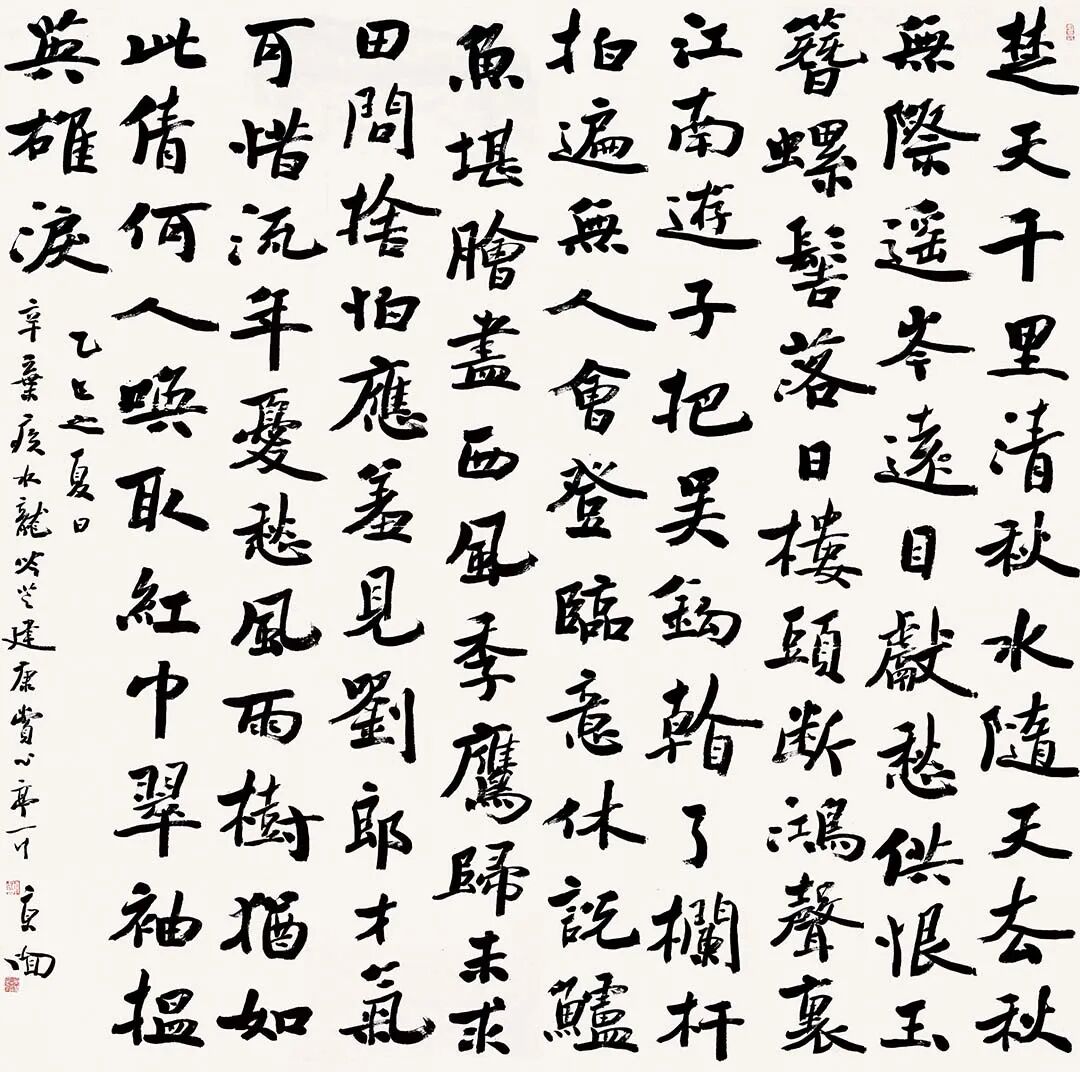 楚天千里清秋水隨天去秋
無際遥岑遠目獻愁供恨玉
簪螺髻落日樓頭断鴻聲裏
江南遊子把吴鈎看了欄杆
拍遍無人會登臨意休説鱸
魚堪膾盡西風季鷹歸未求
田問捨怕應羞見劉郎才氣
可惜流年憂愁風雨樹猶如
此倩何人唤取紅巾翠袖揾
英雄淚
乙巳之夏日
辛棄疾水龍吟登建康賞心亭一